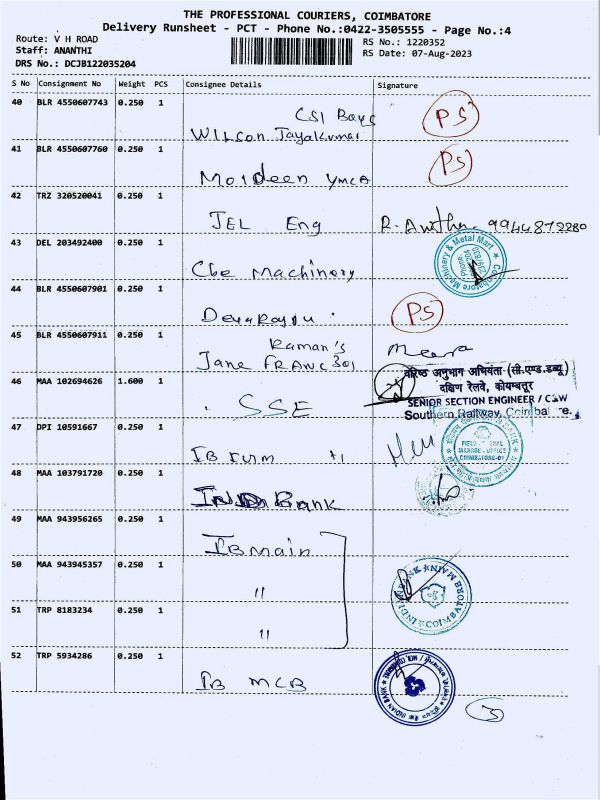 THE PROFESSIONAL COURIERS, COIMBATORE
Delivery Runsheet - PCT - Phone No.:0422-3505555 - Page No.:4
Route: V H ROAD
Staff: ANANTHI
DRS No.: DCJB122035204
RS No.: 1220352
RS Date: 07-Aug-2023
S No Consignment No Weight PCS Consignee Details Signature
40 BLR 4550607743 0.250 1
CSI Boys PS
Wilson Jayakumar
41 BLR 4550607760 0.250 1
Moideen YMCA PS
42 TRZ 320520041 0.250 1
JEL Eng R. 9944872280
43 DEL 203492400 0.250 1
Cbe Machinery Coimbatore Machinery & Metal Mart
44 BLR 4550607901 0.250 1
Devarajulu PS
45 BLR 4550607911 0.250 1
Raman's
Jane Franc 301 Meera
46 MAA 102694626 1.600 1
SSE
वरिष्ठ अनुभाग अभियंता (सी.एण्ड.डब्यू)
दक्षिण रेलवे, कोयम्बत्तूर
SENIOR SECTION ENGINEER / C&W
Southern Railway, Coimbatore.
47 DPI 10591667 0.250 1
IB
48 MAA 103791720 0.250 1
Bank
49 MAA 943956265 0.250 1
IB main
50 MAA 943945357 0.250 1
"
INDIAN BANK COIMBATORE MAIN
51 TRP 8183234 0.250 1
"
52 TRP 5934286 0.250 1
IB MCB
INDIAN BANK
3